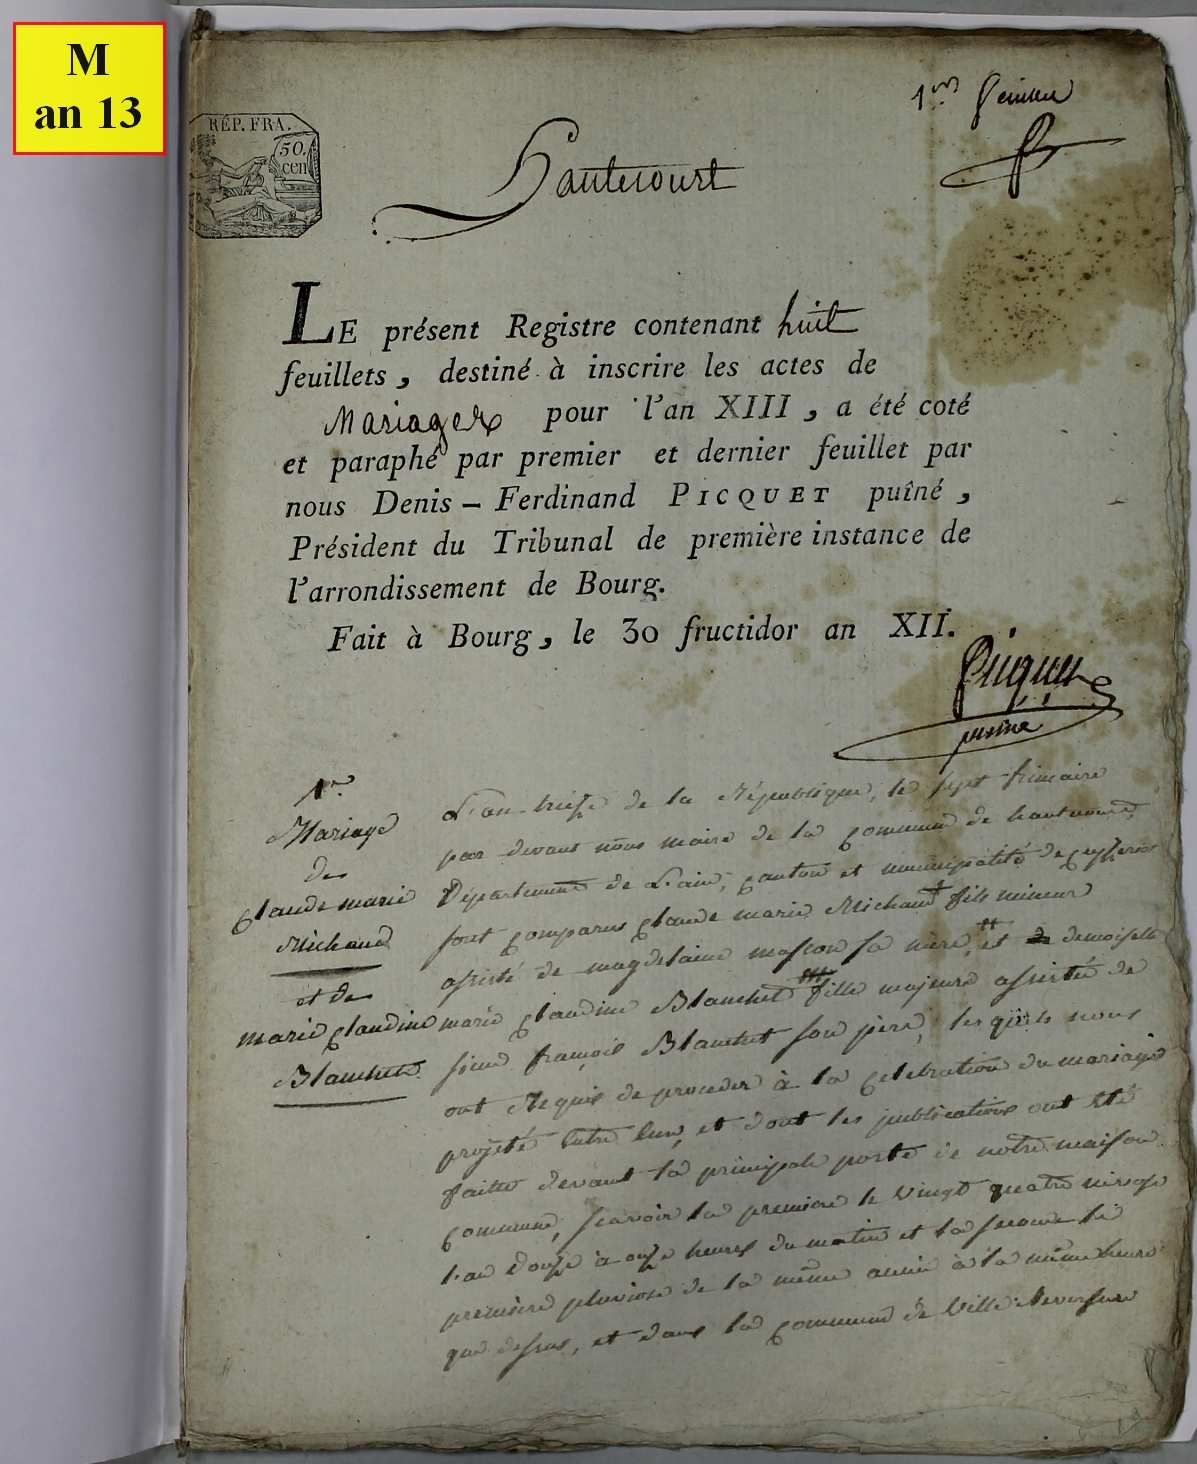 M
an 13
RÉP. FRA.
50.
CEN
1er feuillet
Hautecourt
LE présent Registre contenant huit
feuillets, destiné à inscrire les actes de
Mariages pour l'an XIII, a été coté
et paraphé par premier et dernier feuillet par
nous Denis - Ferdinand PICQUET puîné,
Président du Tribunal de première instance de
l'arrondissement de Bourg.
Fait à Bourg, le 30 fructidor an XII.
Picquet
puine
1er
Mariage
de
Claude marie
Michaud
et de
marie Claudine
Blanchet
L'an treize de la République, le sept frimaire
par devant nous maire de la commune de hautecourt,
Département de L'ain, canton et municipalité de ceyzeriat
sont comparus Claude marie Michaud fils mineur
assisté de magdelaine mascon sa mère, et demoiselle
marie Claudine Blanchet fille majeure assistée de
sieur françois Blanchet son père, lesquels nous
ont Requis de proceder à la celebration du mariage
projeté entre eux, et dont les publications ont été
faites devant la principale porte de notre maison
commune, scavoir la premiere le vingt quatre nivose
l'an douze à onze heures du matin et la seconde le
premier pluviose de la même année à la même heure
que dessus, et dans la commune de Ville Reversure